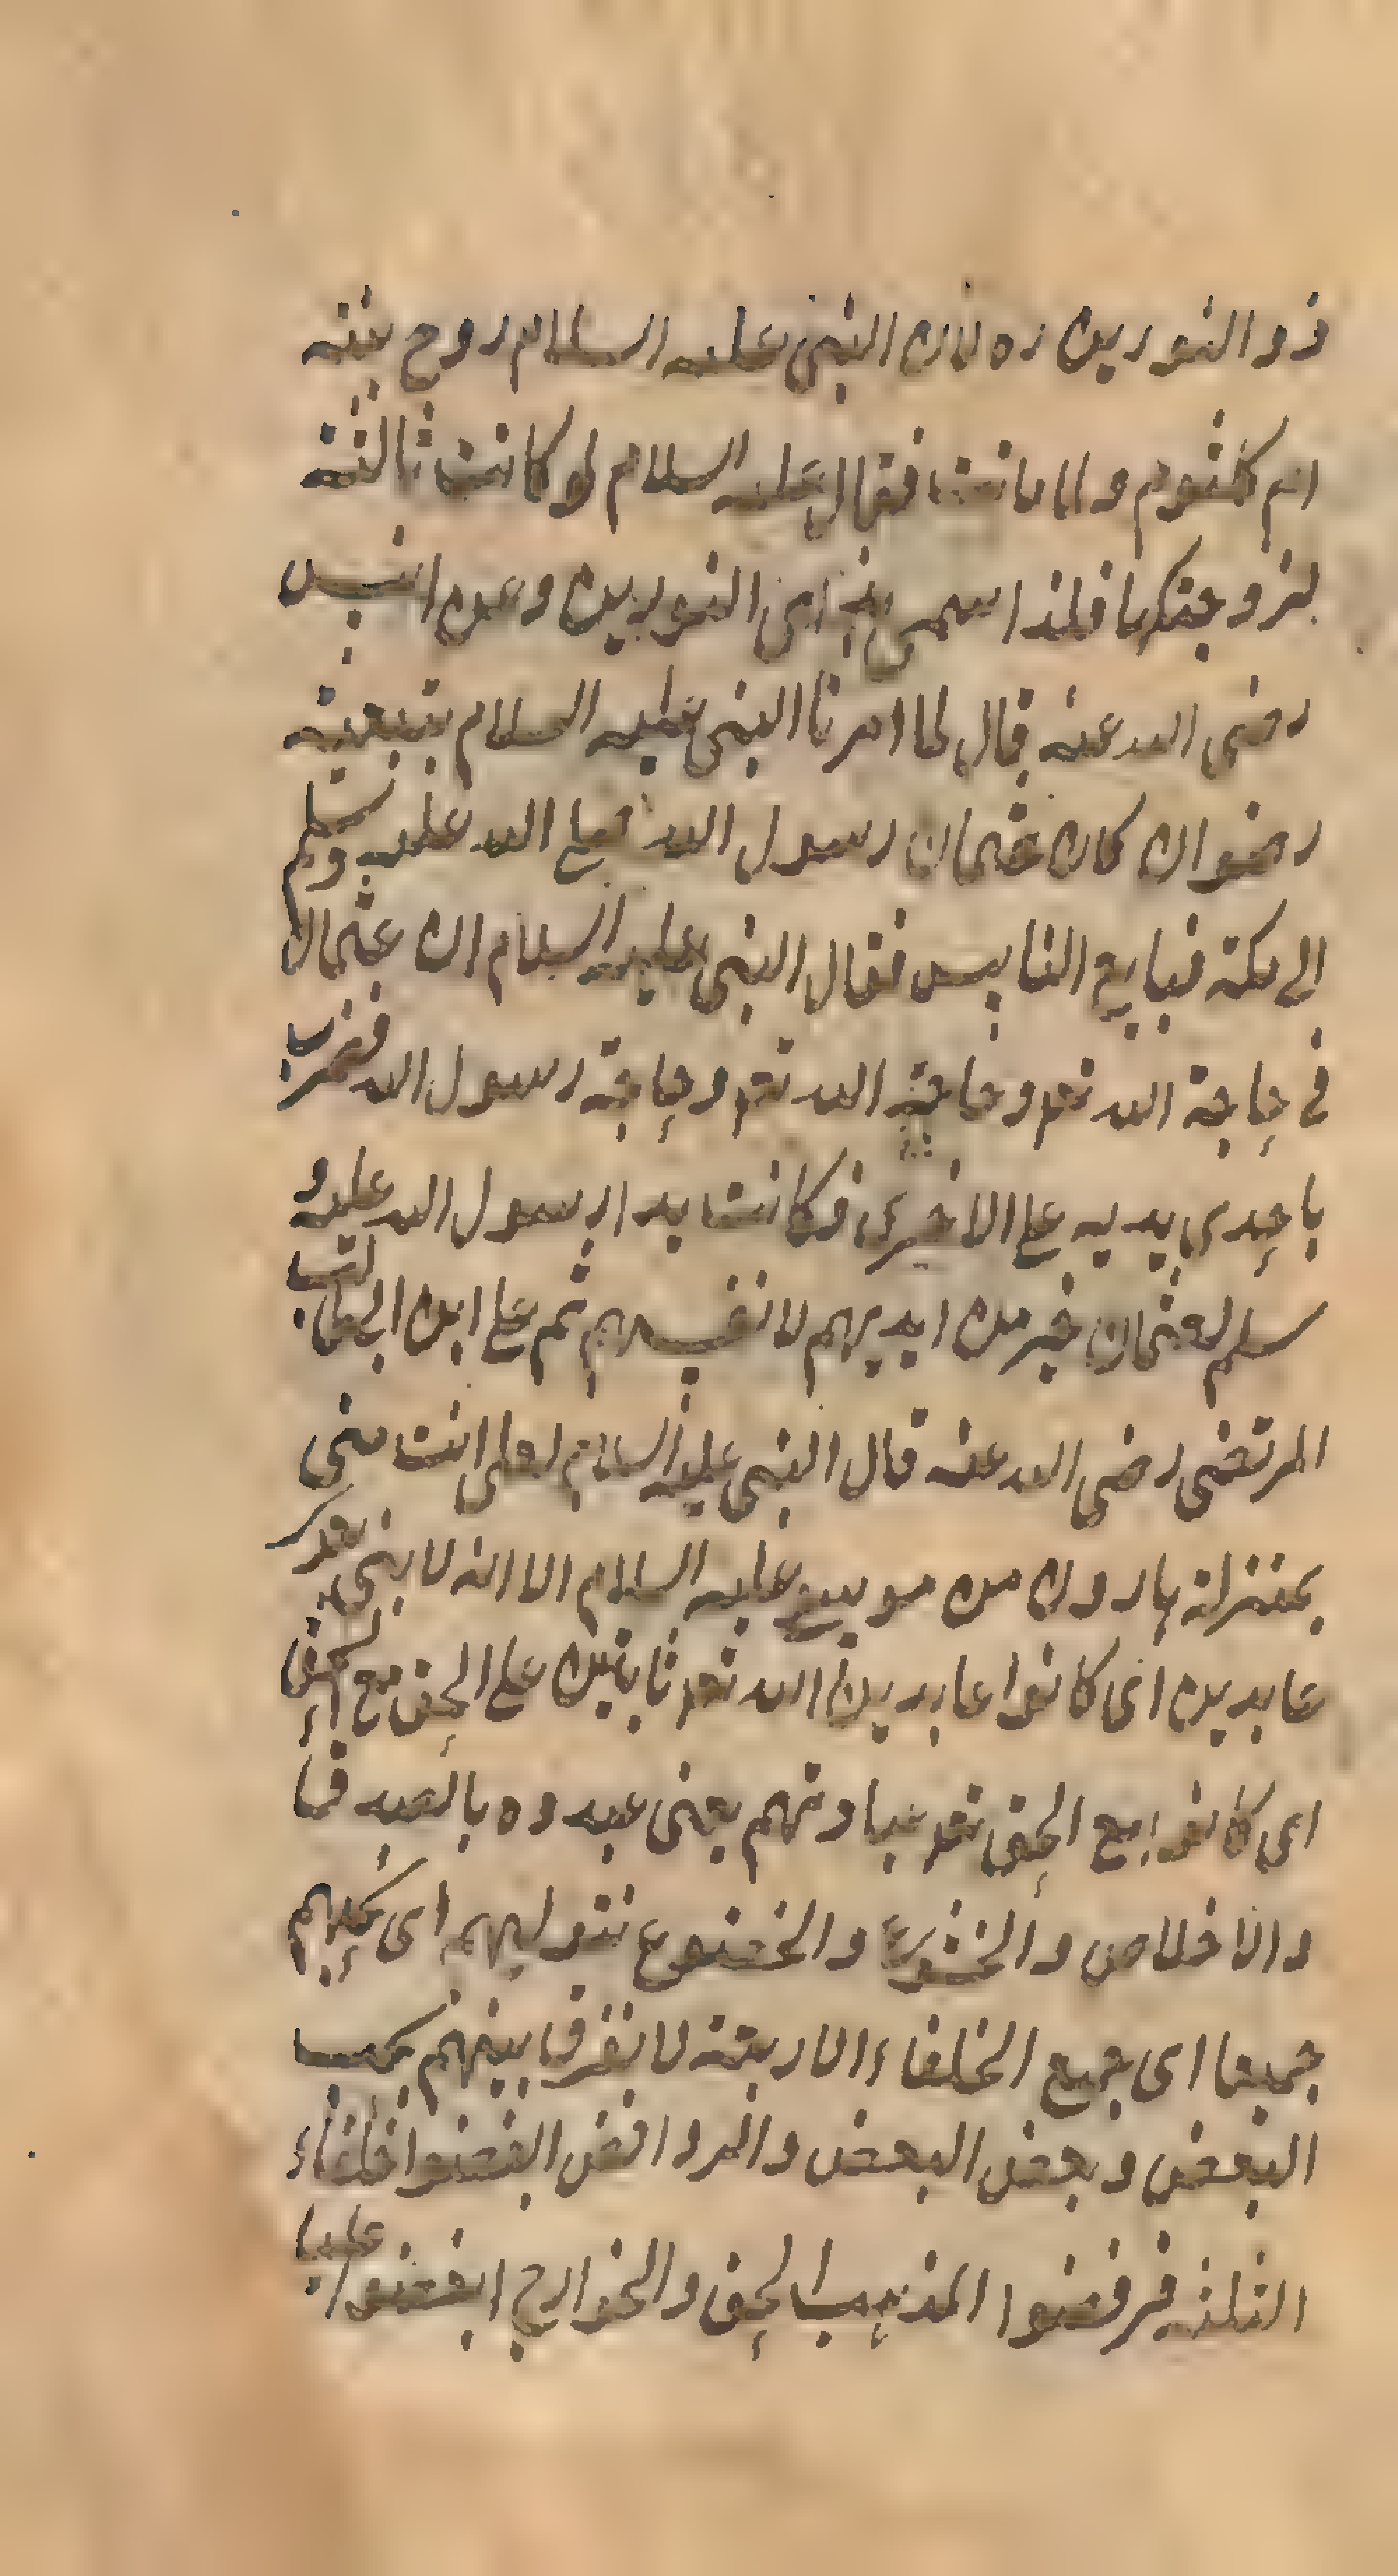 ذو النورين ره لان النبى عليه السلام زوج بنته
ام كلثوم ولما ماتت فقال عليه السلام لو كانت ثالثة
لزوجتكها فلذا سمى بذى النورين وعن انس
رضى الله عنه قال لما امرنا النبى عليه السلام ببيعة
رضوان كان عثمان رسول الله صلى الله عليه وسلم
الى مكة فبايع الناس فقال النبى عليه السلام ان عثمان
فى حاجة الله تعم وحاجة الله تعم وحاجة رسول الله فضرب
باحدى يديه على الاخرى فكانت يد رسول الله عليه و
سلم لعثمان خير من ايديهم لانفسهم ثم على ابن ابى طالب
المرتضى رضى الله عنه قال النبى عليه السلام لعلى انت منى
بمنزلة هارون من موسى عليه السلام الا انه لا نبى بعدى
عابدين اى كانوا عابدين الله تعم ثابتين على الحق مع الحق
اى كانوا مع الحق تعم عبادتهم يعنى عبدوه بالصدق
والاخلاص والخشوع والخضوع نتوليهم اى نحبهم
جميعا اى جميع الخلفاء الاربعة لا نفرق بينهم بحب
البعض وبغض البعض والروافض ابغضوا خلفاء
الثلثة فرفضوا المذهب الحق والخوارج ابغضوا عليا